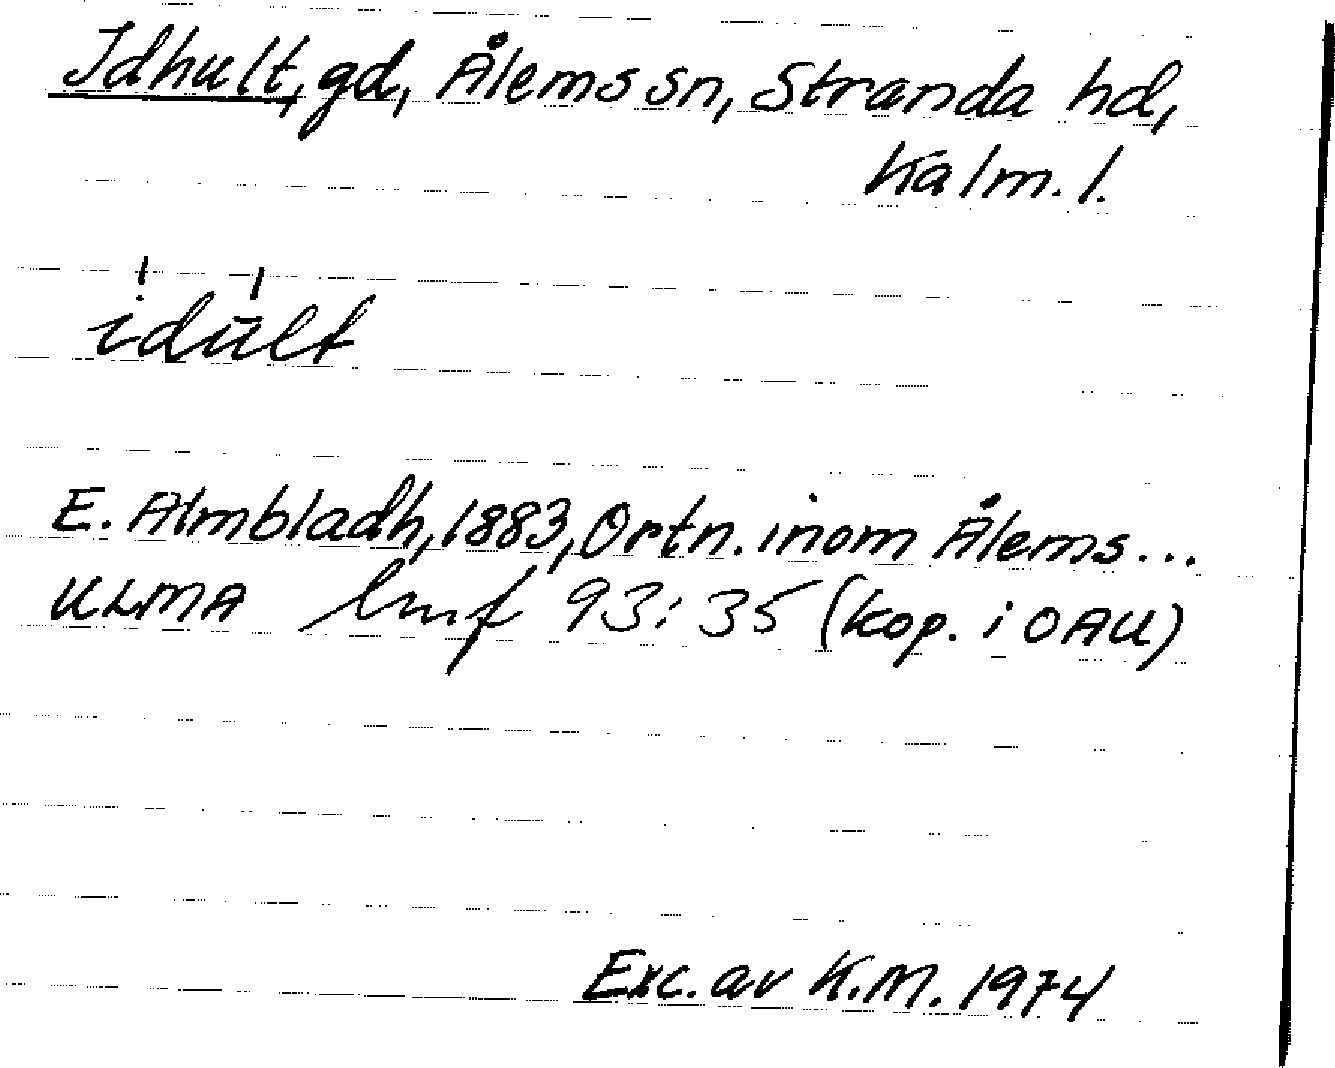 Idhult, gd, Ålems sn, Stranda hd,
Kalm. l.
idūlt
E. Almbladh, 1883, Ortn. inom Ålems...
ULMA lmf 93:35 (kop. i OAU)
Exc. av K.M. 1974